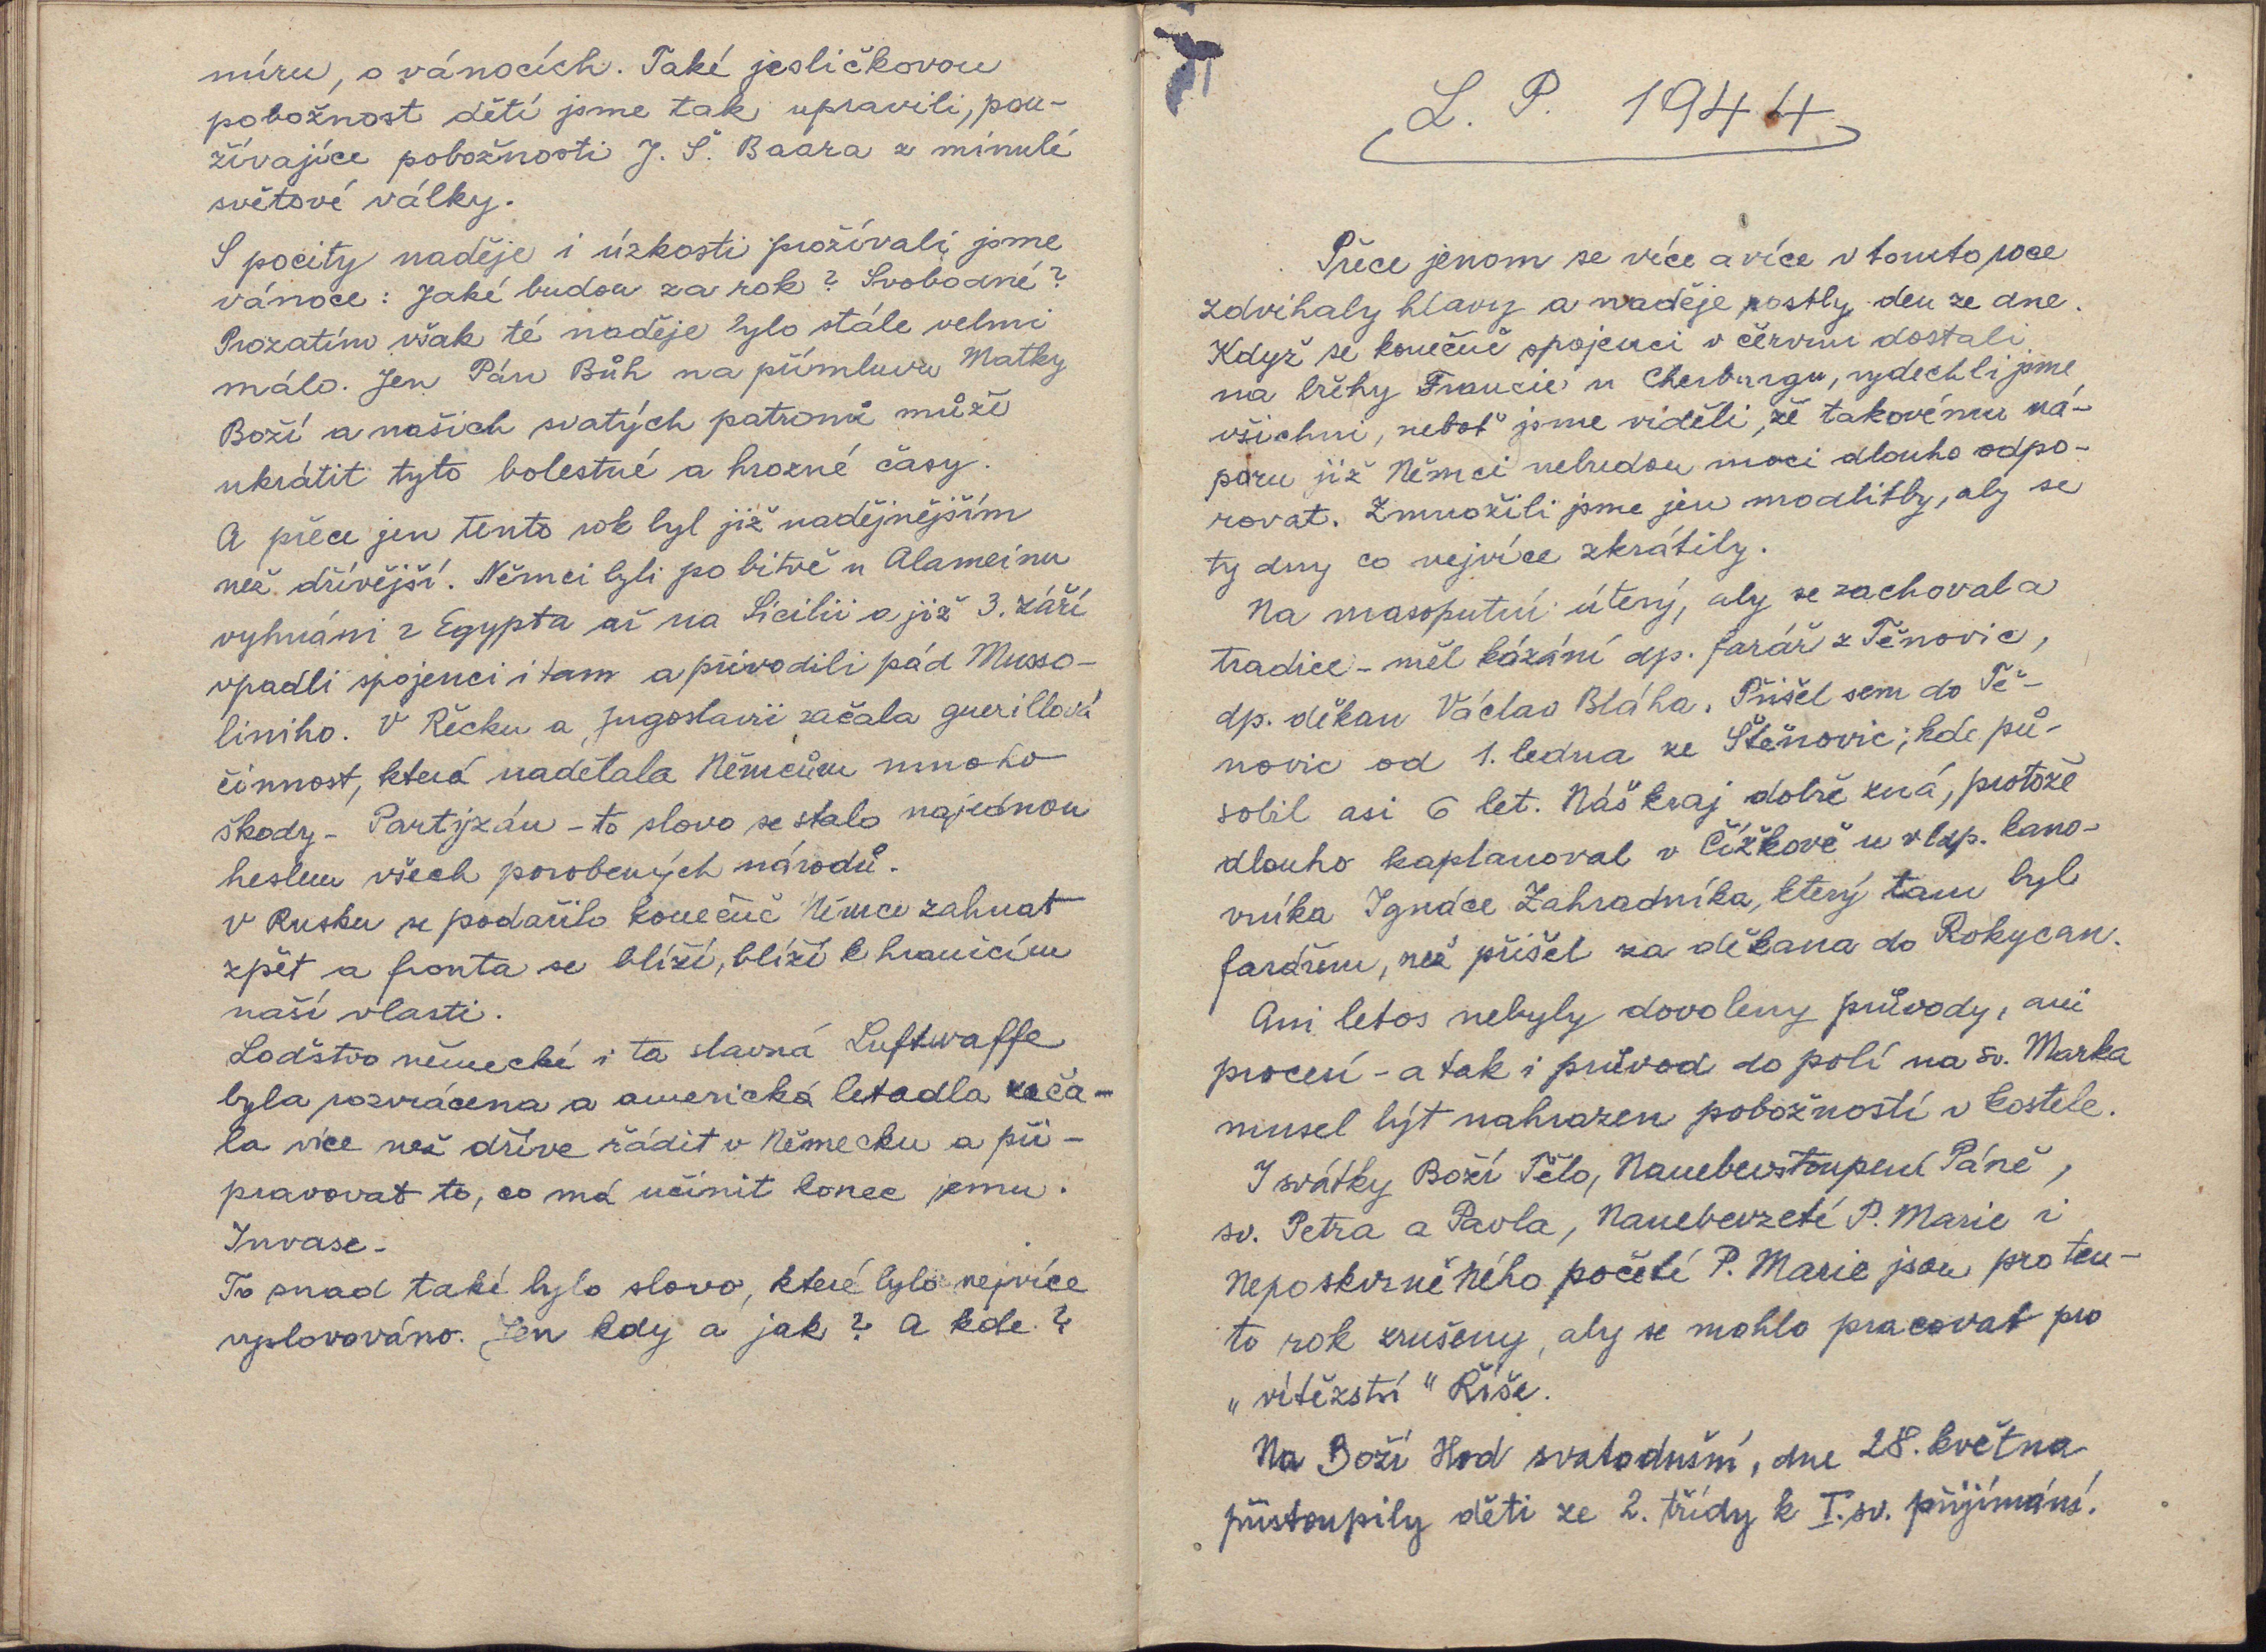 míru, o vánocích. Také jesličkovou
pobožnost dětí jsme tak upravili, pou-
žívajíce pobožnosti J. Š. Baara z minulé
světové války.
S pocity naděje i úzkosti prožívali jsme
vánoce: Jaké budou za rok? Svobodné?
Prozatím však té naděje bylo stále velmi
málo. Jen Pán Bůh na přímluvu Matky
Boží a našich svatých patronů může
ukrátit tyto bolestné a hrozné časy.
A přece jen tento rok byl již nadějnějším
než dřívější. Němci byli po bitvě u Alameinu
vyhnáni z Egypta až na Sicilii a již 3. září
vpadli spojenci i tam a přivodili pád Musso-
liniho. V Řecku a Jugoslavii začala guerillová
činnost, která nadělala Němcům mnoho
škody - Partyzán - to slovo se stalo najednou
heslem všech porobených národů.
V Rusku se podařilo konečně Němce zahnat
zpět a fronta se blíží, blíží k hranicím
naší vlasti.
Loďstvo německé i ta slavná Luftwaffe
byla rozvrácena a americká letadla zača-
la více než dříve řádit v Německu a při-
pravovat to, co má učinit konec jemu.
Invase -
To snad také bylo slovo, které bylo nejvíce
vyslovováno. Jen kdy a jak? A kde?
L. P. 1944
Přece jenom se více a více v tomto roce
zdvihaly hlavy a naděje rostly den ze dne.
Když se konečně spojenci v červnu dostali
na břehy Francie u Cherburgu, vydechli jsme
všichni, neboť jsme viděli, že takovému ná-
poru již Němci nebudou moci dlouho odpo-
rovat. Zmnožili jsme jen modlitby, aby se
ty dny co nejvíce zkrátily.
Na masopustní úterý, aby se zachovala
tradice - měl kázání dp. farář z Těnovic,
dp. děkan Václav Bláha. Přišel sem do Tě-
novic od 1. ledna ze Štěnovic; kde pů-
sobil asi 6 let. Náš kraj dobře zná, protože
dlouho kaplanoval v Čížkově u vldp. kano-
vníka Ignáce Zahradníka, který tam byl
farářem, než přišel za děkana do Rokycan.
Ani letos nebyly dovoleny průvody, ani
procesí - a tak i průvod do polí na sv. Marka
musel být nahrazen pobožností v kostele.
I svátky Boží Tělo, Nanebevstoupení Páně,
sv. Petra a Pavla, Nanebevzetí P. Marie i
Neposkvrněného početí P. Marie jsou pro ten-
to rok zrušeny, aby se mohlo pracovat pro
„vítězství" Říše.
Na Boží Hod svatodušní, dne 28. května
přistoupily děti ze 2. třídy k I. sv. přijímání.